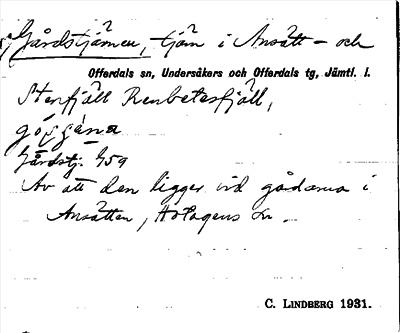 Gårdstjärnen, tjärn i Ansätt- och
Offerdals sn, Undersåkers och Offerdals tg, Jämtl. l.
Stenfjäll Renbetesfjäll,
Gårdstj. G59
Av att den ligger vid gådarna i
Ansätten, Hotagens sn.
C. LINDBERG 1931.